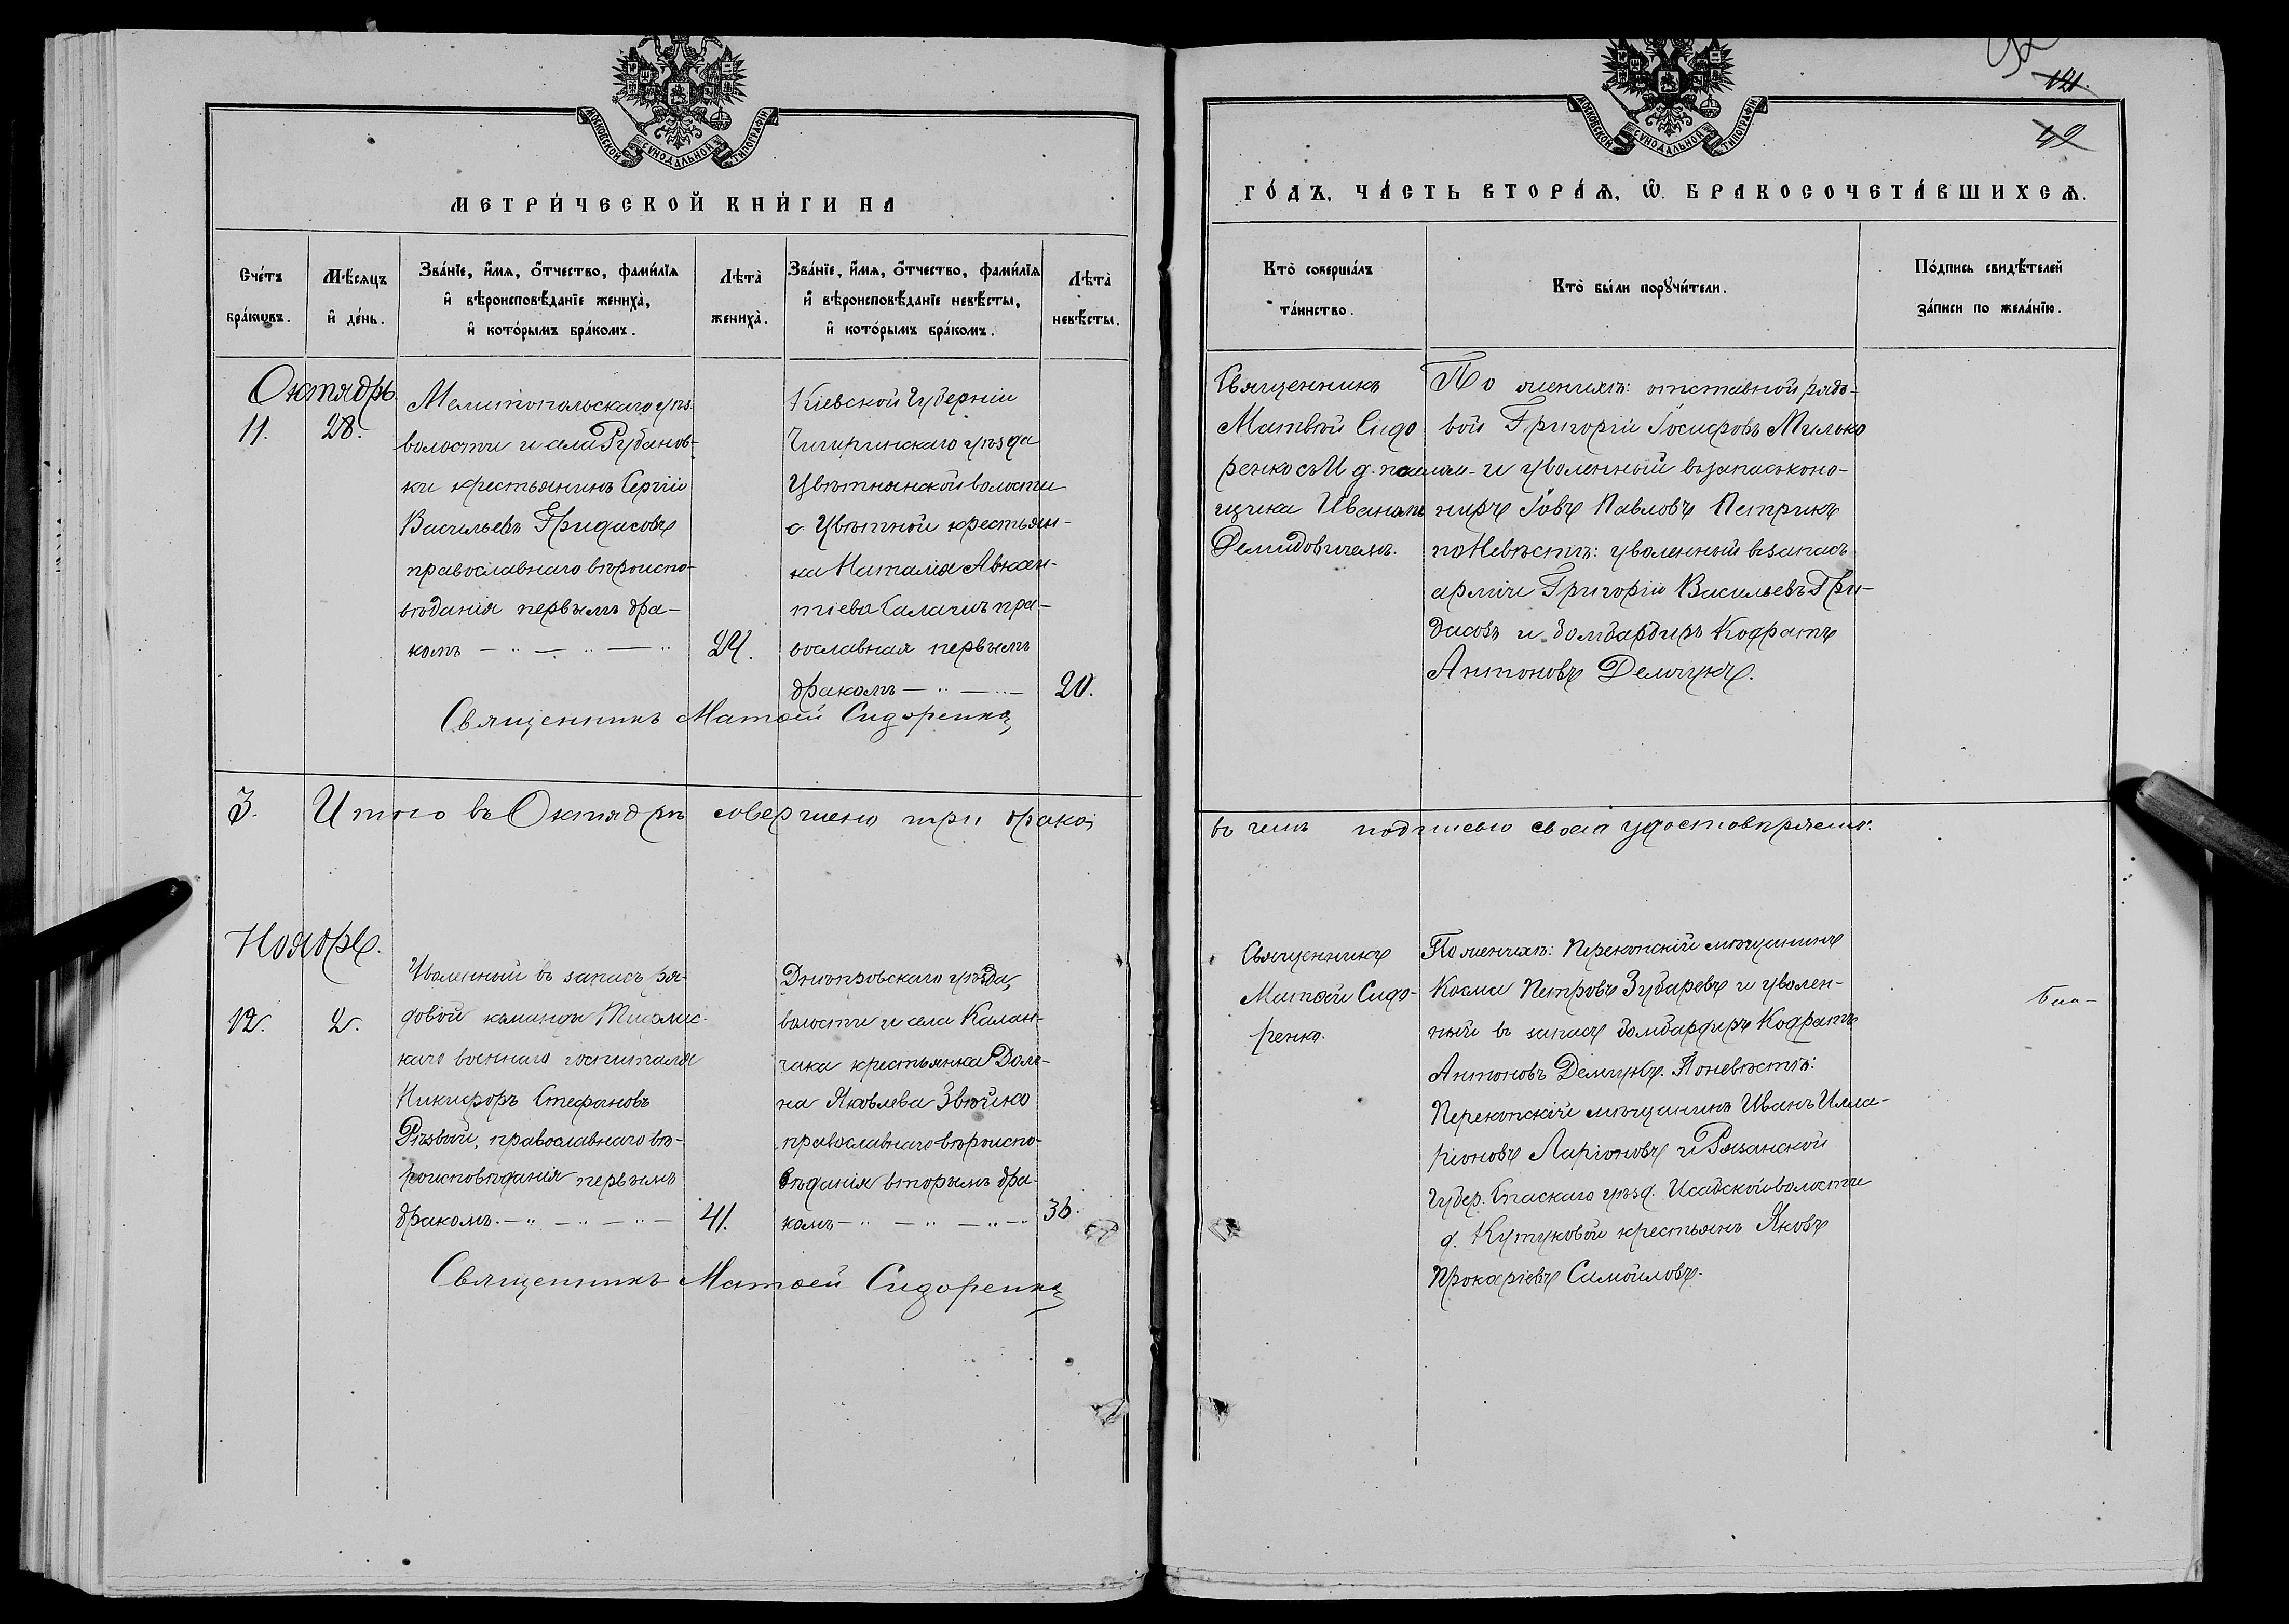 92
121.
49
МОСКОВСКОЙ СѴНОДАЛЬНОЙ ТИПОГРАФІИ
МЕТРИ́ЧЕСКОЙ КНИ́ГИ НА
Сче́тъ бра́кѡвъ.
Мѣ́сяцъ и҆ де́нь.
Зва́нїе, и҆́мя, ѻ҆́тчество, фами́лїя и҆ вѣроисповѣ́данїе жениха̀, и҆ кото́рымъ бра́комъ.
Лѣта̀ жениха̀.
Зва́нїе, и҆́мя, ѻ҆́тчество, фами́лїя и҆ вѣроисповѣ́данїе невѣ́сты, и҆ кото́рымъ бра́комъ.
Лѣта̀ невѣ́сты.
Октябрь.
11.
28.
Мелитопольскаго уѣз.
волости и села Рубанов-
ки крестьянинъ Сергій
Васильевъ Гридасовъ
православнаго вѣроиспо-
вѣданія первымъ бра-
комъ
24.
Кіевской Губерніи
Чигиринскаго уѣзда
Цвѣтнянской волости
с. Цвѣтной крестьян-
ка Наталія Авксен-
тіева пра-
вославная первымъ
бракомъ
20.
Священникъ Матѳей Сидоренко
3.
Итого въ Октябрѣ совершено три брака,
Ноябрь.
12.
2.
Уволенный въ запасъ ря-
довой команды Тифлис-
каго военнаго госпиталя
Никифоръ Стефановъ
Рѣзвый, православнаго вѣ-
роисповѣданія первымъ
бракомъ.
41.
Днѣпровскаго уѣзда,
волости и села Калан-
чака крестьянка Дом-
на Яковлева Звѣйко
православнаго вѣроиспо-
вѣданія вторымъ бра-
комъ
36.
Священникъ Матѳей Сидоренко
МОСКОВСКОЙ СѴНОДАЛЬНОЙ ТИПОГРАФІИ
ГО́ДЪ, ЧА́СТЬ ВТОРА́Я, Ѽ БРАКОСОЧЕТА́ВШИХСЯ.
Кто̀ соверша́лъ та́инство.
Кто̀ бы́ли порꙋчи́тели.
По́дпись свидѣ́телей за́писи по жела́нїю.
Священникъ
Матвѣй Сидо
ренко съ И. д. псалом-
щика Иваномъ
Демидовичемъ.
По женихѣ: отставной рядо-
вой Григорій Іосифовъ Милько
и уволенный въ запасъ коно-
ниръ Іовъ Павловъ Петрикъ
по Невѣстѣ: уволенный въ запасъ
арміи Григорій Васильевъ Гри-
дасовъ и бомбардиръ Кодратъ
Антоновъ Демчукъ.
въ чемъ подписью своею удостовѣряемъ:
Священникъ
Матѳей Сидо-
ренко.
По женихѣ: Перекопскій мѣщанинъ
Косма Петровъ Зубаревъ и уволен-
ный въ запасъ бомбардиръ Кодратъ
Антоновъ Демчукъ. По невѣстѣ:
Перекопскій мѣщанинъ Иванъ Илла-
ріоновъ Ларіоновъ и Рязанской
Губер. Спаскаго уѣзд. Исадской волости
д. Кутуковой крестьянъ Яковъ
Прокаріевъ Самойловъ.